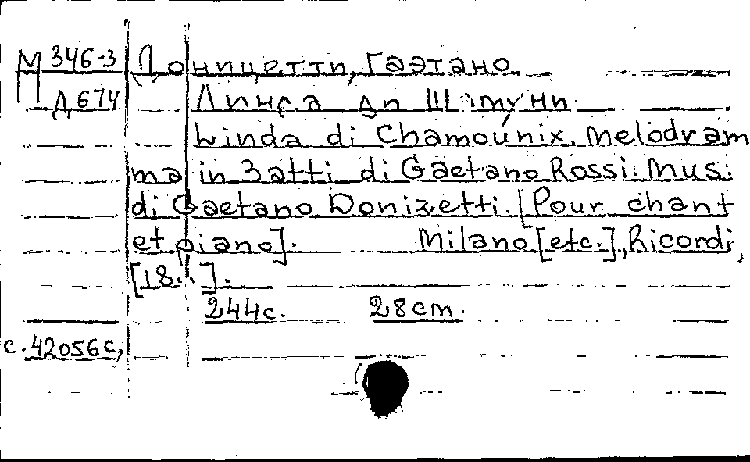 М 346-3 Доницетти, Гаэтано.
Д674 Линда ди Шамуни.
Linda di Chamounix. Melodram
ma in 3 atti di Gaetano Rossi. Mus.
di Gaetano Donizetti. [Pour chant
et piano]. Milano [etc.], Ricordi,
[18..].
244c. 28cm.
с.42056с,